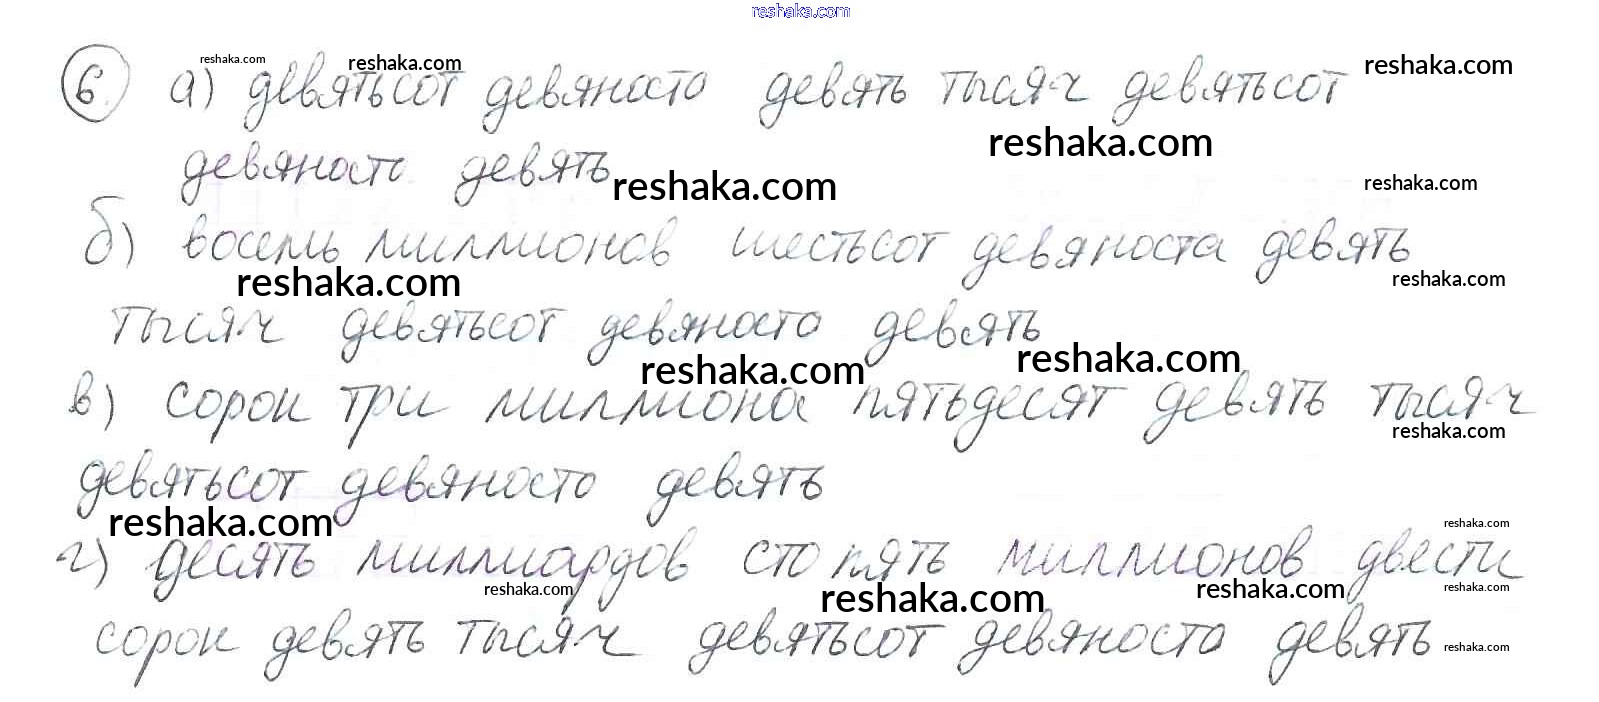 reshaka.com
6 а) девятьсот девяносто девять тысяч девятьсот
reshaka.com reshaka.com reshaka.com
reshaka.com
девяность девять
reshaka.com reshaka.com
б) восемь миллионов шестьсот девяноста девять
reshaka.com reshaka.com
тысяч девятьсот девяносто девять
reshaka.com reshaka.com
в) сорок три миллиона пятьдесят девять тысяч
reshaka.com
девятьсот девяносто девять
reshaka.com reshaka.com
г) десять миллиардов сто пять миллионов двести
reshaka.com reshaka.com reshaka.com reshaka.com
сорок девять тысяч девятьсот девяноста девять
reshaka.com